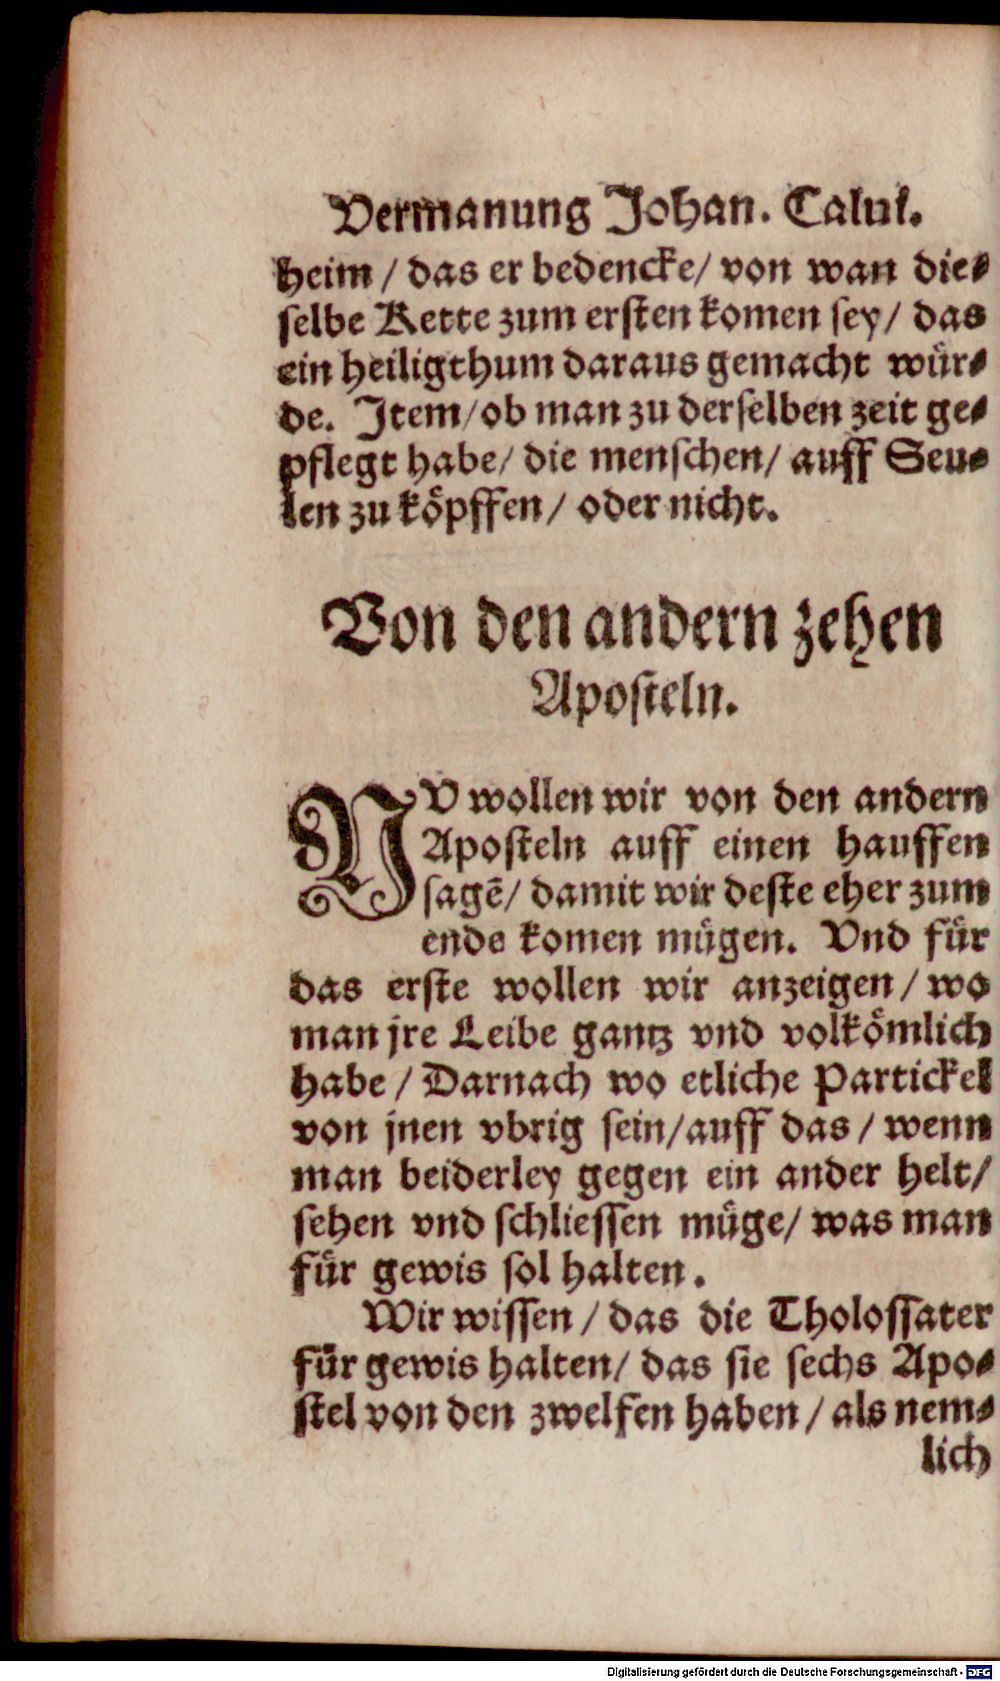 Vermanung Johan. Calui.
heim / das er bedencke / von wan die⸗
selbe Kette zum ersten komen sey / das
ein heiligthum daraus gemacht wuͤr⸗
de. Item / ob man zu derselben zeit ge⸗
pflegt habe / die menschen / auff Seu⸗
len zu koͤpffen / oder nicht.
Von den andern zehen
Aposteln.
NV wollen wir von den andern
Aposteln auff einen hauffen
sagē / damit wir deste eher zum
ende komen muͤgen. Vnd fuͤr
das erste wollen wir anzeigen / wo
man jre Leibe gantz vnd volkoͤmlich
habe / Darnach wo etliche Partickel
von jnen vbrig sein / auff das / wenn
man beiderley gegen ein ander helt /
sehen vnd schliessen muͤge / was man
fuͤr gewis sol halten.
Wir wissen / das die Tholossater
fuͤr gewis halten / das sie sechs Apo⸗
stel von den zwelfen haben / als nem⸗
lich
Digitalisierung gefördert durch die Deutsche Forschungsgemeinschaft - DFG